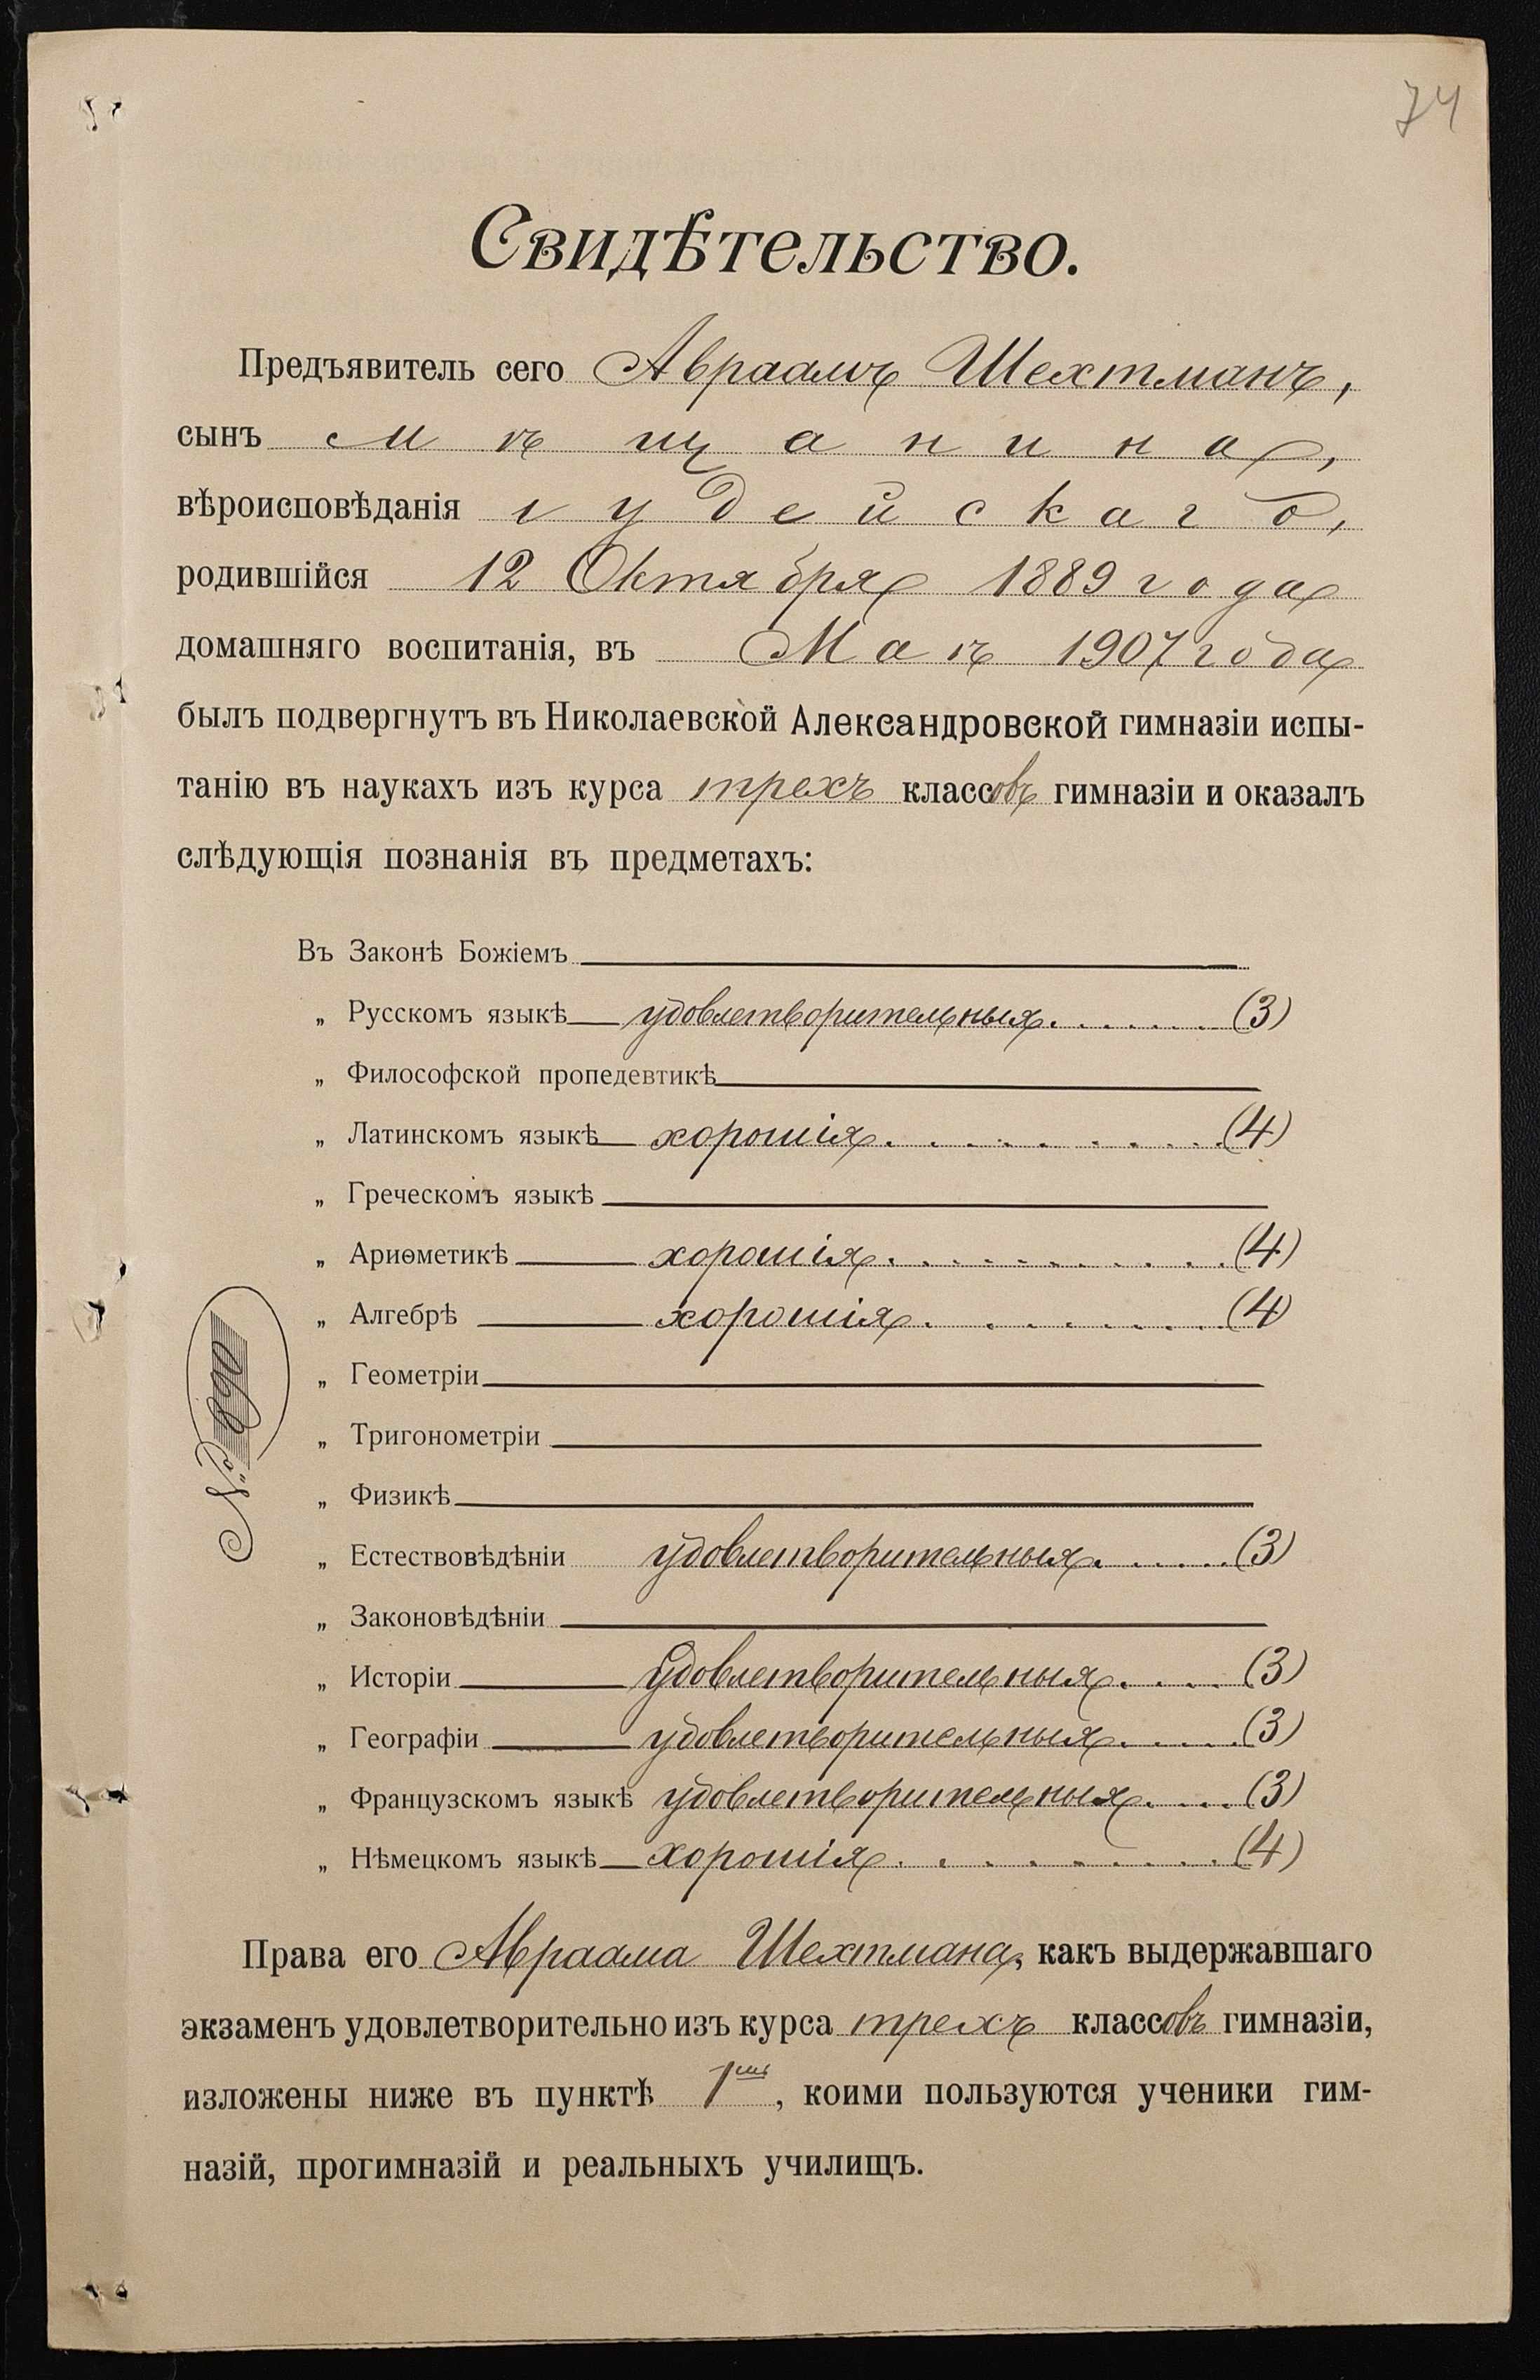 74
Свидѣтельство.
Предъявитель сего Авраамъ Шехтманъ,
сынъ мѣщанина,
вѣроисповѣданія іудейскаго,
родившійся 12 Октября 1889 года
домашняго воспитанія, въ Маѣ 1907 года
былъ подвергнутъ въ Николаевской Александровской гимназіи испы-
танію въ наукахъ изъ курса трехъ классовъ гимназіи и оказалъ
слѣдующія познанія въ предметахъ:
Въ Законѣ Божіемъ
„ Русскомъ языкѣ удовлетворительныя. . . . . . . (3)
„ Философской пропедевтикѣ
„ Латинскомъ языкѣ хорошія. . . . . . . . . (4)
„ Греческомъ языкѣ
„ Ариѳметикѣ хорошія. . . . . . . . . . (4)
„ Алгебрѣ хорошія. . . . . . . . . (4)
„ Геометріи
„ Тригонометріи
„ Физикѣ
„ Естествовѣдѣніи удовлетворительныя. . . . . (3)
„ Законовѣдѣніи
„ Исторіи удовлетворительныя. . . . (3)
„ Географіи удовлетворительныя. . . . . (3)
„ Французскомъ языкѣ удовлетворительныя. . . . (3)
„ Нѣмецкомъ языкѣ хорошія. . . . . . . . . (4)
№ 890
Права его Авраама Шехтмана, какъ выдержавшаго
экзаменъ удовлетворительно изъ курса трехъ классовъ гимназіи,
изложены ниже въ пунктѣ 1мъ, коими пользуются ученики гим-
назій, прогимназій и реальныхъ училищъ.